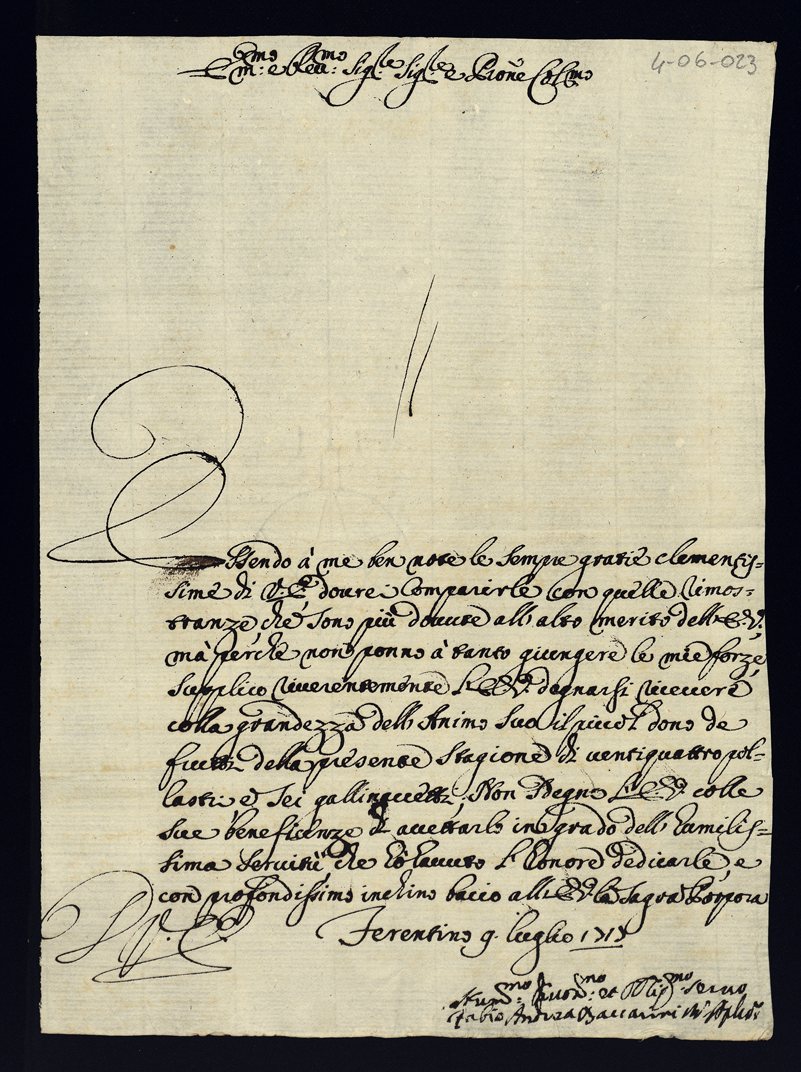 4-06-023
Em:mo e Reu:mo Sig:re Sig:re e Prōne Col:mo
Essendo à me ben note le sempre gratie clementis-
sime di V.E. dourei Comparirle con quelle rimos-
tranze che sono più douute all'alto merito dell'E.V.
mà perche non ponno à tanto giungere le mie forze
supplico riuerentemente l'E.V. degnarsi riceuere
colla grandezza dell'Animo suo il piccol dono de
frutti della presente stagione di uentiquattro pol-
lastri e sei gallinaccetti. Non Degno l'E.V. colle
sue beneficenze di accettarlo in grado dell'humilis-
sima seruitù che hò hauuto l'honore dedicarle, e
con profondissimo inchino baccio all'E.V. la sagra Porpora
D. V. E. Ferentino 9 luglio 1717
Hum:mo Diuot:mo et Oblig:mo seruo
Fabio Andrea Baccarini